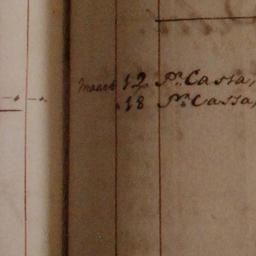 Maart 12 Pr. Cassa,
18 Pr. Cassa,